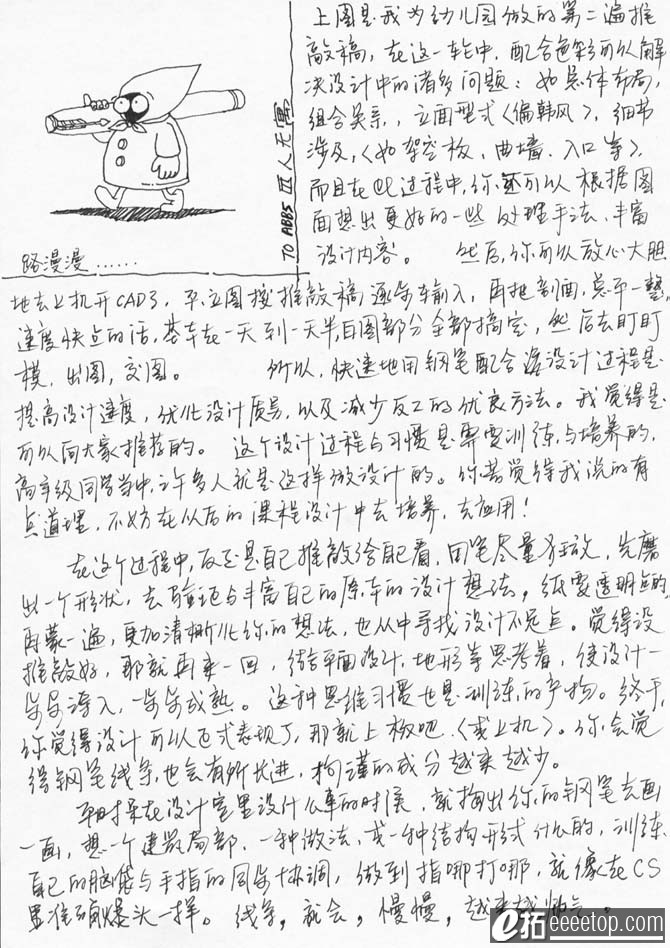 上图是我为幼儿园做的第二遍推
敲稿，在这一轮中，配合色彩可以解
决设计中的诸多问题：如总体布局，
组合关系，立面型式〈偏韩风〉，细节
涉及，〈如架空板、曲墙、入口等〉，
而且在些过程中，你还可以根据图
面想出更好的一些处理手法、丰富
设计内容。 然后，你可以放心大胆
TO ABBS 皿人无寓
路漫漫……
地去上机开CAD了，平、立图按推敲稿逐步车输入，再把剖面，总平一整，
速度快点的话，基本在一天到一天半白图部分全部搞定，然后去盯盯
模，出图，交图。 所以，快速地用钢笔配合设计过程是
提高设计速度，优化设计质量，以及减少反工的优良方法。我觉得是
可以向大家推荐的。 这个设计过程与习惯是需要训练与培养的，
高年级同学当中，许多人就是这样做设计的。你若觉得我说的有
点道理，不妨在从后的课程设计中去培养，去应用！
在这个过程中，反正是自己推敲给自己看，用笔尽量豪放，先磨
出一个形状，去验证与丰富自己的原本的设计想法。纸要透明点的，
再蒙一遍，更加清晰化你的想法，也从中寻找设计不足点。觉得没
推敲好，那就再来一回，结合平面设计，地形等思考着，使设计一
步步深入，一步步成熟。这种思维习惯也是训练的产物。终于，
你觉得设计可以正式表现了，那就上板吧〈或上机〉。你会觉
得钢笔线条，也会有所长进，拘谨的成分越来越少。
平时呆在设计室里没什么事的时侯，就掏出你的钢笔去画
一画，想一个建筑局部，一种做法，或一种结构形式什么的，训练
自己的脑袋与手指的同步协调，做到指哪打哪，就像在CS
里准确爆头一样。线条，就会，慢慢，越来越帅气。
e拓 eeeetop.com